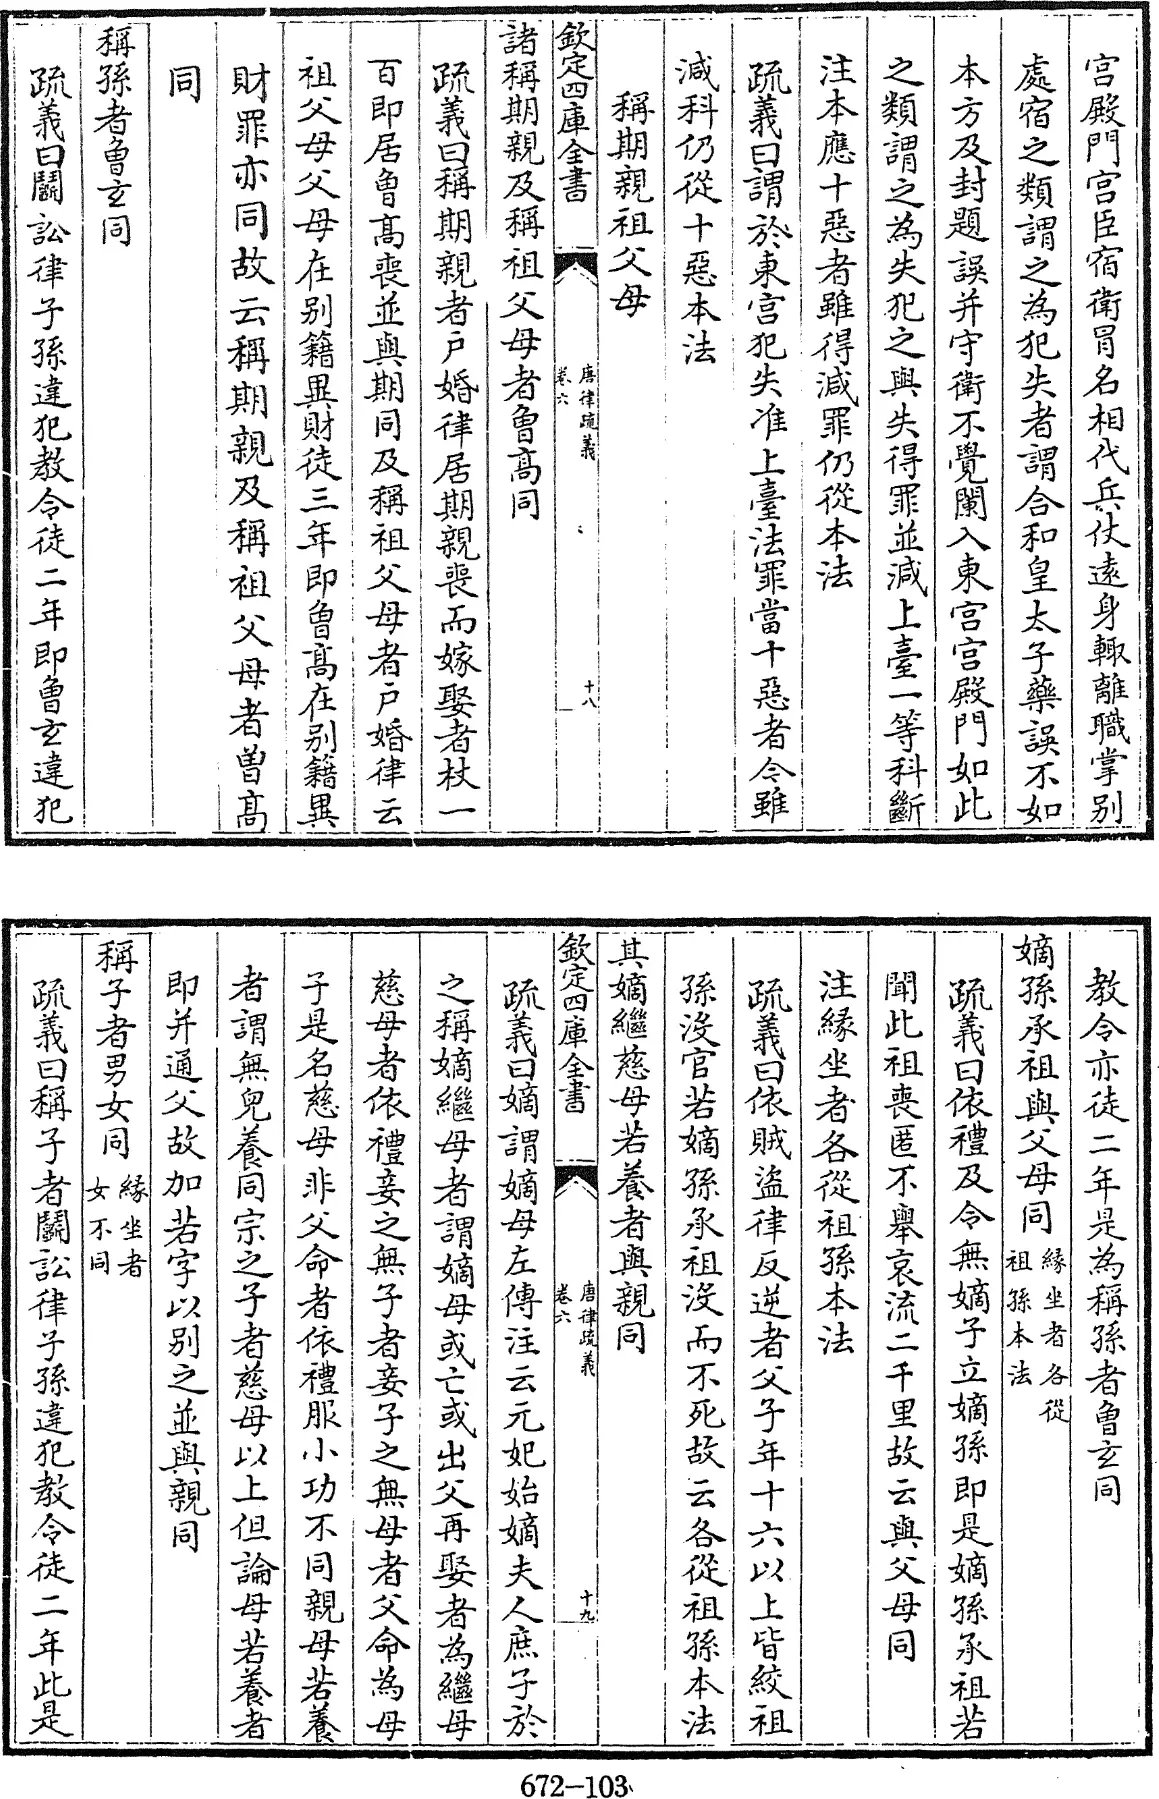 宫殿門宫臣宿衛冒名相代兵仗遠身輙離職掌别
處宿之類謂之為犯失者謂合和皇太子藥誤不如
本方及封題誤并守衛不覺闌入東宫宫殿門如此
之類謂之為失犯之與失得罪並減上臺一等科斷
注本應十惡者雖得減罪仍從本法
疏義曰謂於東宫犯失准上臺法罪當十惡者令雖
減科仍從十惡本法
稱期親祖父母
欽定四庫全書
唐律疏義
卷六
十八
諸稱期親及稱祖父母者曾髙同
疏義曰稱期親者户婚律居期親喪而嫁娶者杖一
百即居曾髙喪並與期同及稱祖父母者户婚律云
祖父母父母在别籍異財徒三年即曾髙在别籍異
財罪亦同故云稱期親及稱祖父母者曾髙
同
稱孫者曾玄同
疏義曰鬭訟律子孫違犯教令徒二年即曾玄違犯
教令亦徒二年是為稱孫者曾玄同
嫡孫承祖與父母同
縁坐者各從
祖孫本法
疏義曰依禮及令無嫡子立嫡孫即是嫡孫承祖若
聞此祖喪匿不舉哀流二千里故云與父母同
注縁坐者各從祖孫本法
疏義曰依賊盗律反逆者父子年十六以上皆絞祖
孫没官若嫡孫承祖没而不死故云各從祖孫本法
其嫡繼慈母若養者與親同
欽定四庫全書
唐律疏義
卷六
十九
疏義曰嫡謂嫡母左傳注云元妃始嫡夫人庶子於
之稱嫡繼母者謂嫡母或亡或出父再娶者為繼母
慈母者依禮妾之無子者妾子之無母者父命為母
子是名慈母非父命者依禮服小功不同親母若養
者謂無兒養同宗之子者慈母以上但論母若養者
即并通父故加若字以别之並與親同
稱子者男女同
縁坐者
女不同
疏義曰稱子者鬭訟律子孫違犯教令徒二年此是
672-103